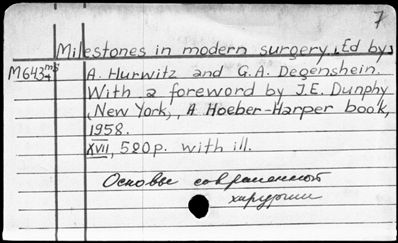 7
Milestones in modern surgery. Ed by
M643 m5/4 A. Hurwitz and G.A. Degenshein.
With a foreword by J.E. Dunphy
New York, A Hoeber-Harper book,
1958.
XVII, 520 p. with ill.
Основы современной
хирургии